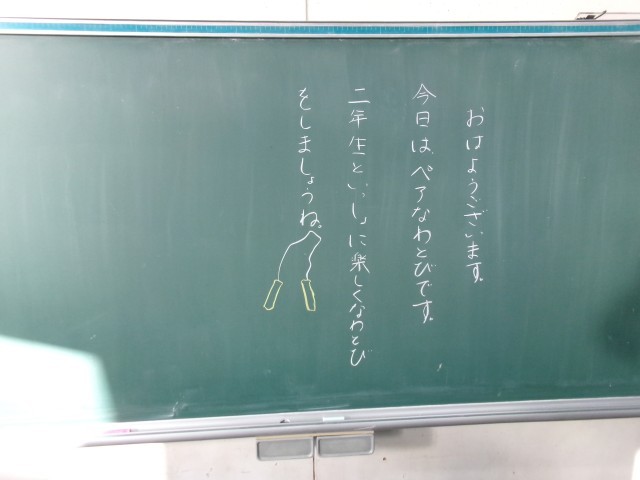 おはようございます。
今日は、ペアなわとびです。
二年生といっしょに楽しくなわとび
をしましょうね。